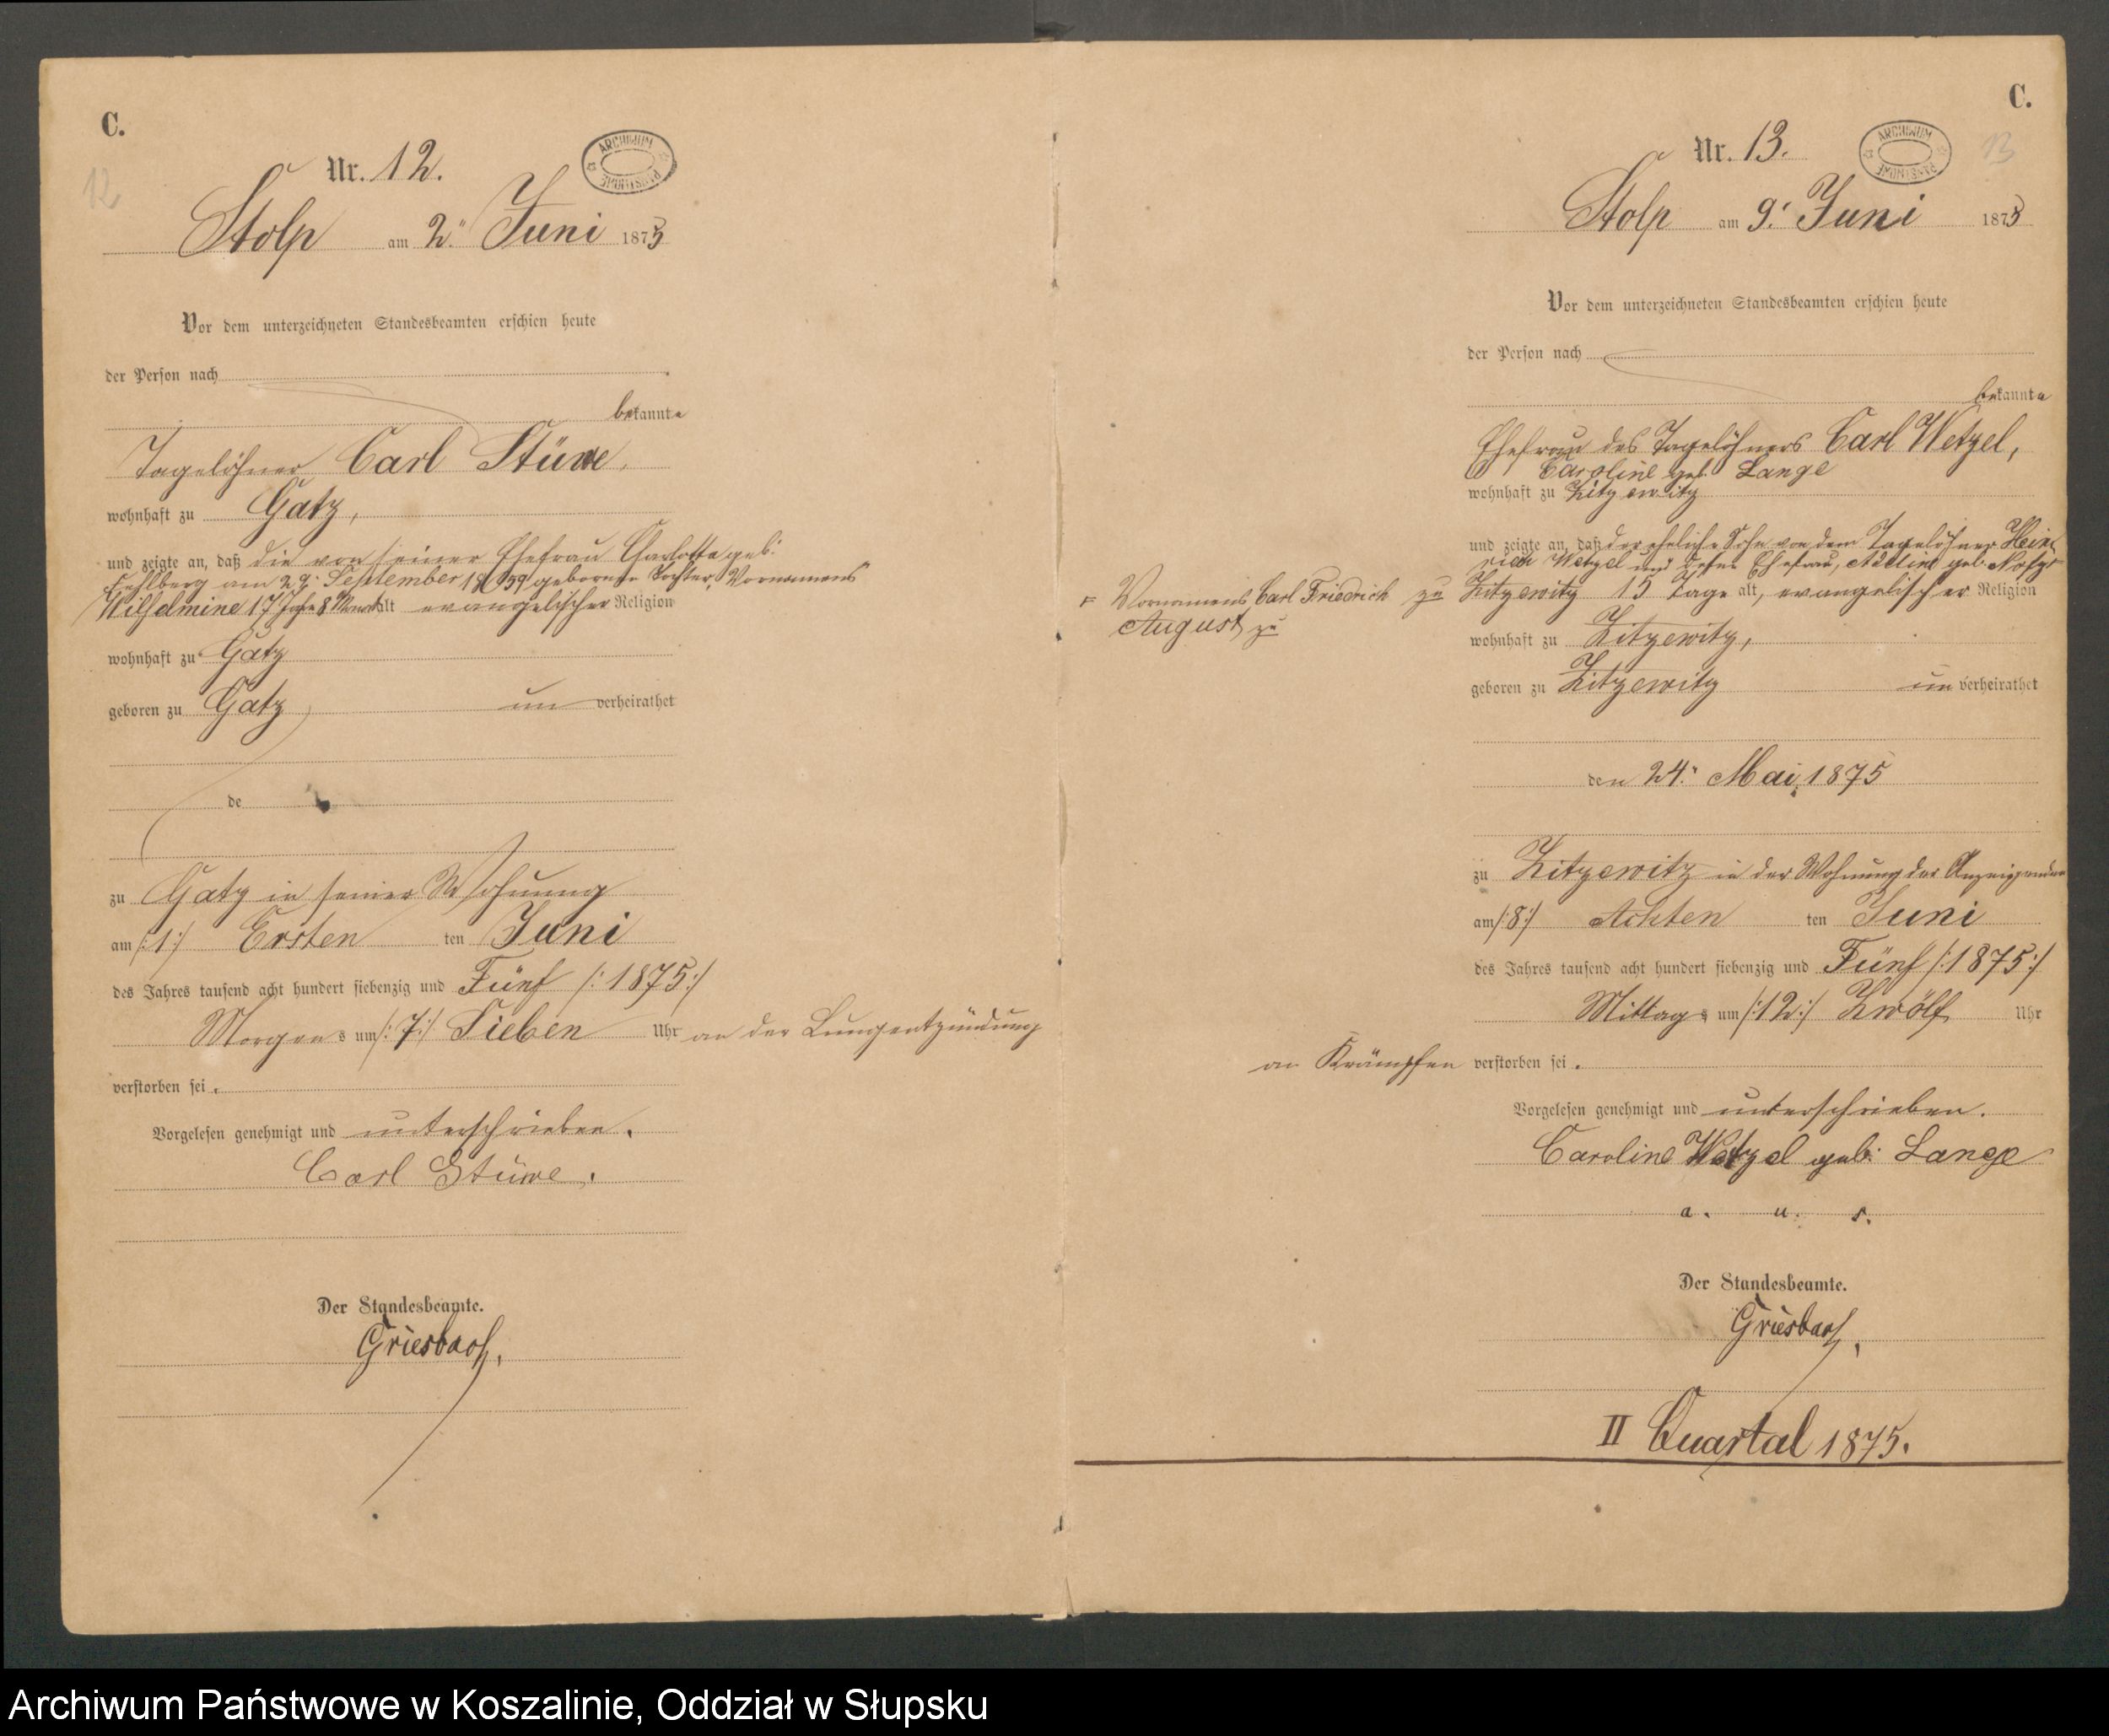 C.
12
Nr. 12.
ARCHIWUM PAŃSTWOWE
Stolp am 2ten Juni 1875
Vor dem unterzeichneten Standesbeamten erschien heute
der Person nach
bekannte
Tagelöhner Carl Stüwe,
wohnhaft zu Gatz,
und zeigte an, daß die von seiner Ehefrau Charlotte geb:
am 29. September 1857 geborene Tochter, Vornamens
Wilhelmine 17 Jahr 8 Monat alt evangelischer Religion
wohnhaft zu Gatz
geboren zu Gatz un verheirathet
de
zu Gatz in seiner Wohnung
am /:1:/ Ersten ten Juni
des Jahres tausend acht hundert siebenzig und Fünf /: 1875:/
Morgens um /:7:/ Sieben Uhr an der Lungentzündung
verstorben sei.
Vorgelesen genehmigt und unterschrieben.
Carl Stüwe.
Der Standesbeamte.
Griesbach,
C.
13
Nr. 13.
ARCHIWUM PAŃSTWOWE
Stolp am 9. Juni 1875
Vor dem unterzeichneten Standesbeamten erschien heute
der Person nach
bekannte
Ehefrau des Tagelöhners Carl Wetzel,
Caroline geb. Lange
wohnhaft zu Zitzewitz
und zeigte an, daß der eheliche Sohn von dem Tagelöhner Hein-
rich Wetzel und deßen Ehefrau, geb.
Vornamens Carl Friedrich zu Zitzewitz 15 Tage alt, evangelischer Religion
August, zu
wohnhaft zu Zitzewitz,
geboren zu Zitzewitz un verheirathet
den 24. Mai, 1875
zu Zitzewitz in der Wohnung der Anzeigenden
am /:8:/ Achten ten Juni
des Jahres tausend acht hundert siebenzig und Fünf /:1875:/
Mittags um /:12:/ Zwölf Uhr
an Krämpfen verstorben sei.
Vorgelesen genehmigt und unterschrieben.
Caroline Wetzel geb: Lange
a. u. s.
Der Standesbeamte.
Griesbach,
II Quartal 1875.
Archiwum Państwowe w Koszalinie, Oddział w Słupsku